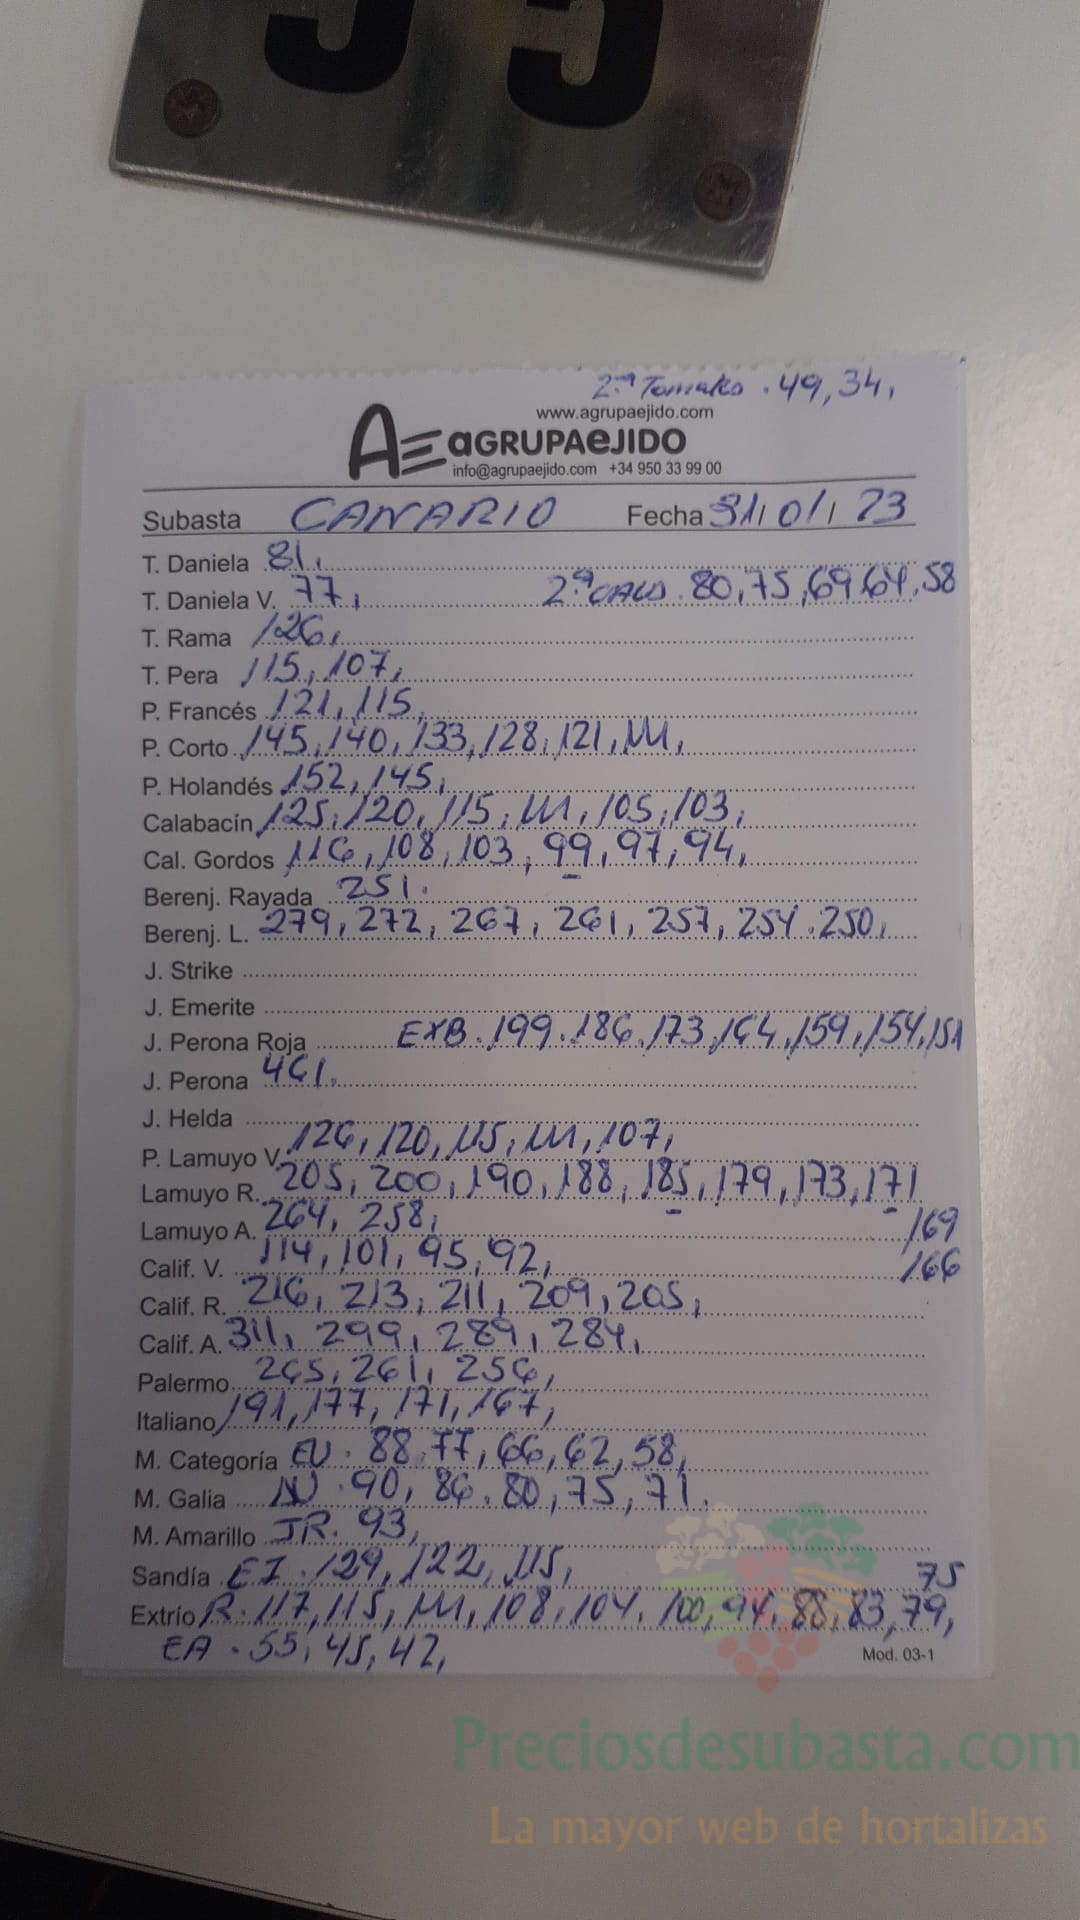 55
2ª Tomates . 49, 34,
www.agrupaejido.com
AE aGRUPAeJIDO
info@agrupaejido.com +34 950 33 99 00
Subasta CANARIO Fecha 31/01/23
T. Daniela 81,
T. Daniela V. 77, 2ª CALS. 80, 75, 69, 64, 58
T. Rama 126,
T. Pera 115, 107,
P. Francés 121, 115,
P. Corto 145, 140, 133, 128, 121, 111,
P. Holandés 152, 145,
Calabacín 125, 120, 115, 111, 105, 103,
Cal. Gordos 116, 108, 103, 99, 97, 94,
Berenj. Rayada 251.
Berenj. L. 279, 272, 267, 261, 257, 254. 250,
J. Strike
J. Emerite
J. Perona Roja EXB. 199. 186, 173, 164, 159, 154, 151
J. Perona 461.
J. Helda
P. Lamuyo V. 126, 120, 115, 111, 107,
Lamuyo R. 205, 200, 190, 188, 185, 179, 173, 171
Lamuyo A. 264, 258, 169
Calif. V. 114, 101, 95, 92, 166
Calif. R. 216, 213, 211, 209, 205,
Calif. A. 311, 299, 289, 284,
Palermo 265, 261, 256,
Italiano 191, 177, 171, 167,
M. Categoría EU. 88, 77, 66, 62, 58,
M. Galia NU. 90, 86, 80, 75, 71.
M. Amarillo JR. 93,
Sandía EI. 129, 122, 115, 75
Extrío R. 117, 115, 111, 108, 104, 100, 94, 88, 83, 79,
EA. 55, 45, 42,
Mod. 03-1
Preciosdesubasta.com
La mayor web de hortalizas